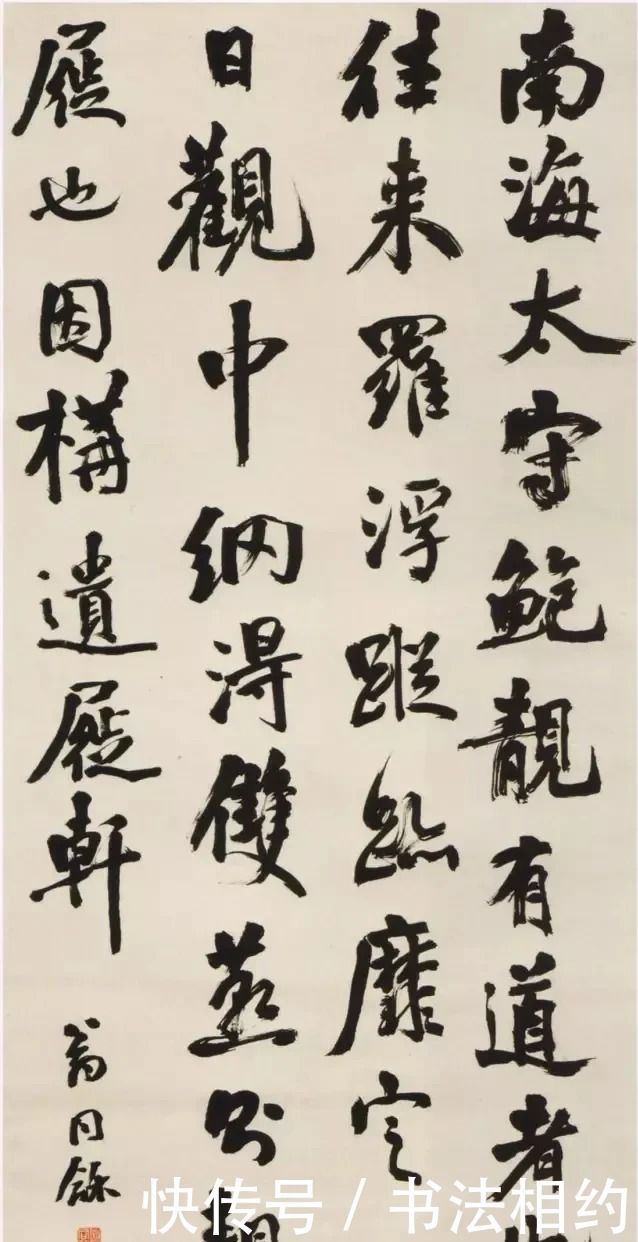 南海太守鮑靚有道者
往来羅浮蹤跡靡定
日觀中網得雙燕則
屣也因構遺屣軒
翁同龢
快传号 / 书法相约